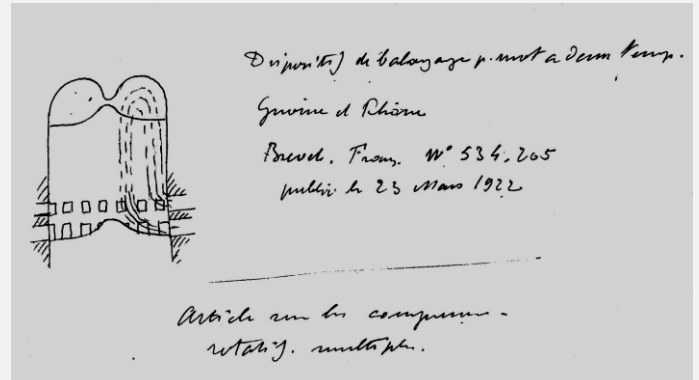 Dispositif de balayage p. mot à deux temps.
Gnome et Rhône
Brevet. Franç. N° 534.205
publié le 23 Mars 1922
Article sur les compresseurs
rotatifs. multiples.